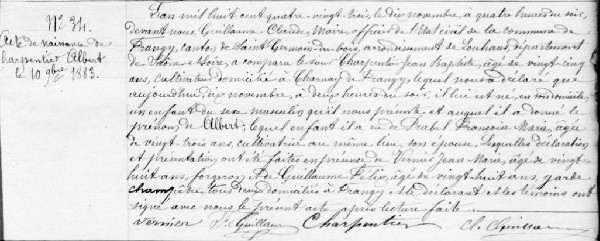 N° 34.
Acte de naissance de
Charpentier Albert
le 10 9bre 1883.
L'an mil huit cent quatre-vingt-trois, le dix novembre, à quatre heures du soir,
devant nous, Guillaume Claude Marie, officier de l'Etat civil de la commune de
Frangy, canton de Saint Germain-du-bois, arrondissement de Louhans, département
de Saône-et-Loire, a comparu le sieur Charpentier Jean Baptiste, âgé de vingt-cinq
ans, cultivateur domicilié à Charnay de Frangy, lequel nous a déclaré que
aujourd'hui, dix novembre, à deux heures du soir, il lui est né, en son domicile,
un enfant du sexe masculin qu'il nous présente et auquel il a donné le
prénom de Albert; lequel enfant il a eu de Françoise Marie, âgée
de vingt-trois ans, cultivatrice au même lieu, son épouse. Lesquelles déclaration
et présentation ont été faites en présence de Jean Marie, âgé de vingt-
huit ans, forgeron, et de Guillaume Félix, âgé de vingt-huit ans, garde
champêtre, tous deux domiciliés à Frangy, et le déclarant et les témoins ont
signé avec nous le présent acte après lecture faite.
Guillaume Charpentier Cl. Guillaume